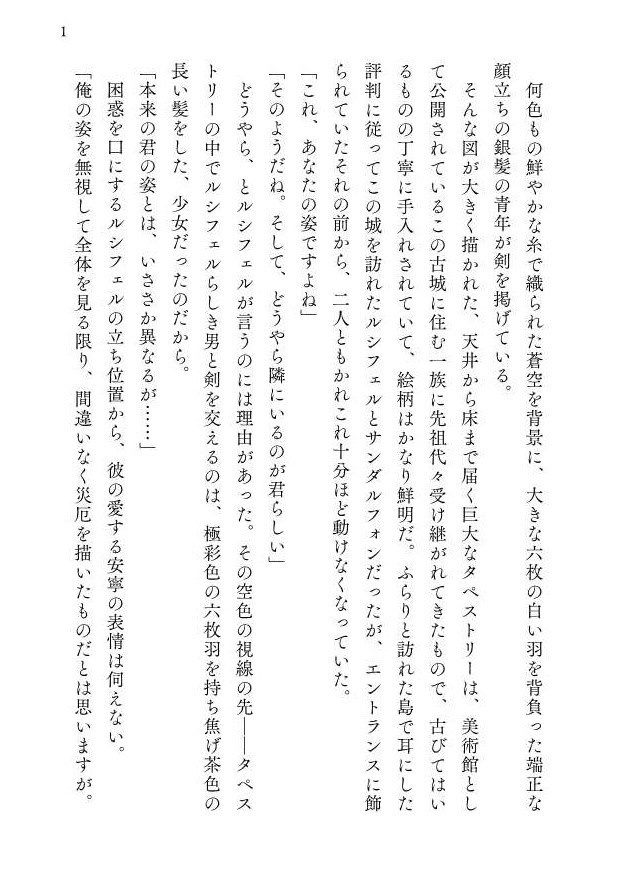 1
何色もの鮮やかな糸で織られた蒼空を背景に、大きな六枚の白い羽を背負った端正な
顔立ちの銀髪の青年が剣を掲げている。
そんな図が大きく描かれた、天井から床まで届く巨大なタペストリーは、美術館とし
て公開されているこの古城に住む一族に先祖代々受け継がれてきたもので、古びてはい
るものの丁寧に手入れされていて、絵柄はかなり鮮明だ。ふらりと訪れた島で耳にした
評判に従ってこの城を訪れたルシフェルとサンダルフォンだったが、エントランスに飾
られていたそれの前から、二人ともかれこれ十分ほど動けなくなっていた。
「これ、あなたの姿ですよね」
「そのようだね。そして、どうやら隣にいるのが君らしい」
どうやら、とルシフェルが言うのには理由があった。その空色の視線の先――タペス
トリーの中でルシフェルらしき男と剣を交えるのは、極彩色の六枚羽を持ち焦げ茶色の
長い髪をした、少女だったのだから。
「本来の君の姿とは、いささか異なるが……」
困惑を口にするルシフェルの立ち位置から、彼の愛する安寧の表情は伺えない。
「俺の姿を無視して全体を見る限り、間違いなく災厄を描いたものだとは思いますが。